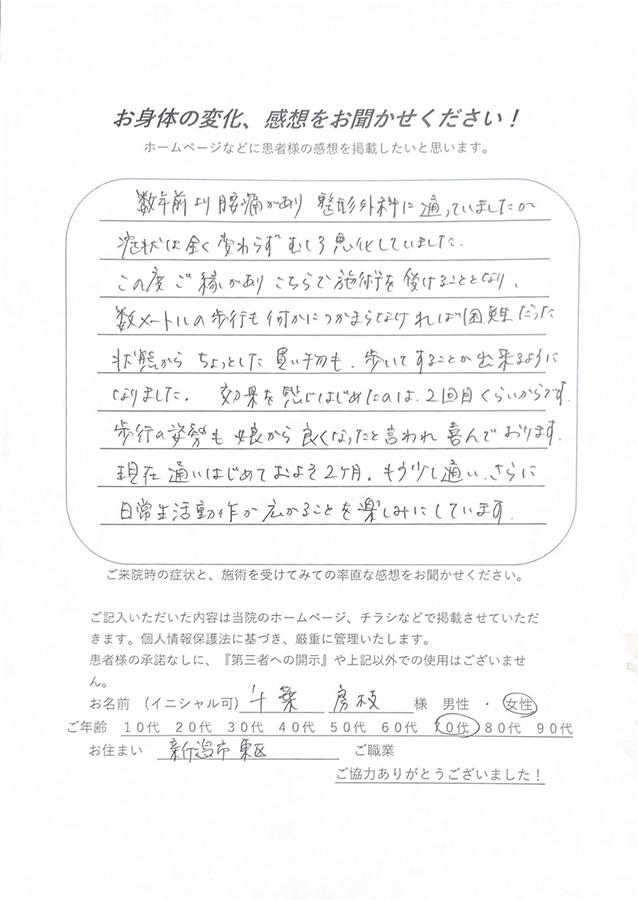 お身体の変化、感想をお聞かせください！
ホームページなどに患者様の感想を掲載したいと思います。
数年前より腰痛があり 整形外科に通っていましたが
症状は全く変わらずむしろ悪化していました.
この度ご縁があり こちらで施術を受けることとなり、
数メートルの歩行も何かにつかまらなければ困難だった
状態から ちょっとした買い物も、歩いてすることが出来るように
なりました. 効果を感じはじめたのは、2回目くらいからです.
歩行の姿勢も 娘から良くなったと言われ 喜んでおります.
現在 通いはじめておよそ2ヶ月. もう少し通い、さらに
日常生活動作が広がることを楽しみにしています.
ご来院時の症状と、施術を受けてみての率直な感想をお聞かせください。
ご記入いただいた内容は当院のホームページ、チラシなどで掲載させていただ
きます。個人情報保護法に基づき、厳重に管理いたします。
患者様の承諾なしに、『第三者への開示』や上記以外での使用はございませ
ん。
お名前 （イニシャル可） 千葉 房枝 様 男性 ・ 女性
ご年齢 10代 20代 30代 40代 50代 60代 70代 80代 90代
お住まい 新潟市東区 ご職業
ご協力ありがとうございました！